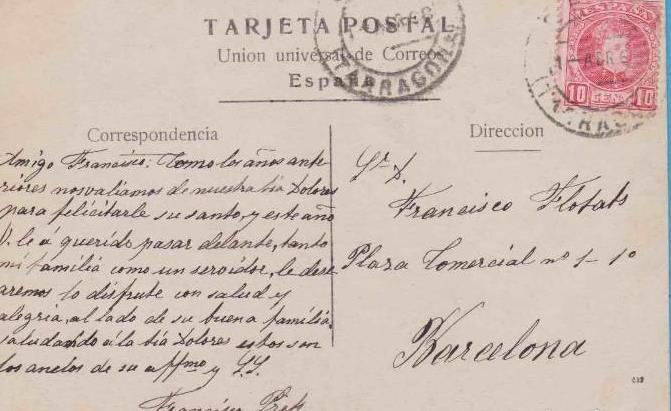 TARJETA POSTAL
Union universal de Correos
España
ESPAÑA
10 CENT. 10
TARRAGONA
1 ABR
TARRAGONA
Correspondencia
Direccion
Amigo Francisco: Como los años ante-
riores nos valiamos de nuestra tia Dolores
para felicitarle su santo, y este año
V. le á querido pasar delante, tanto
mi familia como un servidor, le dese-
aremos lo disfrute con salud y
alegria, al lado de su buena familia,
saludando á la tia Dolores estos son
los anelos de su affmo y S.S.
Francisco
Sr. D.
Francisco Flotats
Plaza Comercial nº 1-1º
Barcelona